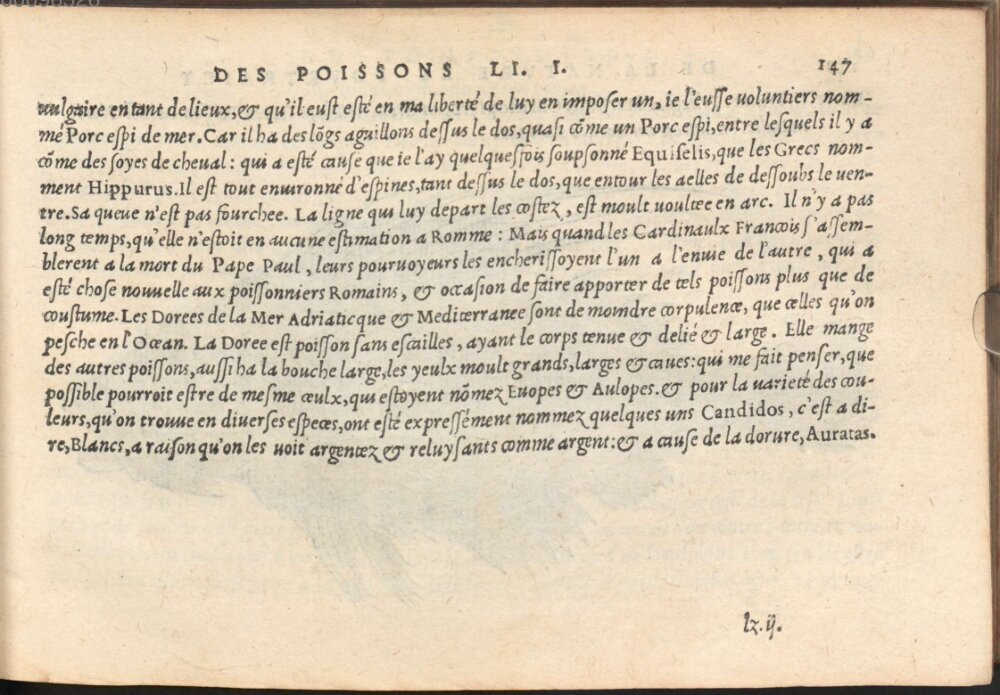 DES POISSONS LI. I. 147
vulgaire en tant de lieux, & qu'il eust esté en ma liberté de luy en imposer un, ie l'eusse uoluntiers nom-
mé Porc espi de mer. Car il ha des lõgs aguillons dessus le dos, quasi cõme un Porc espi, entre lesquels il y a
cõme des soyes de cheual : qui a esté cause que ie l'ay quelquesfois soupsonné Equiselis, que les Grecs nom-
ment Hippurus. Il est tout enuironné d'espines, tant dessus le dos, que entour les aelles de dessoubs le uen-
tre. Sa queue n'est pas fourchee. La ligne qui luy depart les costez, est moult uoultee en arc. Il n'y a pas
long temps, qu'elle n'estoit en aucune estimation a Romme : Mais quand les Cardinaulx Francois s'assem-
blerent a la mort du Pape Paul, leurs pouruoyeurs les encherissoyent l'un a l'enuie de l'autre, qui a
esté chose nouuelle aux poissonniers Romains, & occasion de faire apporter de tels poissons plus que de
coustume. Les Dorees de la Mer Adriaticque & Mediterranee sont de moindre corpulence, que celles qu'on
pesche en l'Ocean. La Doree est poisson sans escailles, ayant le corps tenue & delié & large. Elle mange
des autres poissons, aussi ha la bouche large, les yeulx moult grands, larges & caues : qui me fait penser, que
possible pourroit estre de mesme ceulx, qui estoyent nõmez Euopes & Aulopes. & pour la uarieté des cou-
leurs, qu'on trouue en diuerses especes, ont esté expressément nommez quelques uns Candidos, c'est a di-
re, Blancs, a raison qu'on les uoit argentez & reluysants comme argent : & a cause de la dorure, Auratas.
lz. ij.